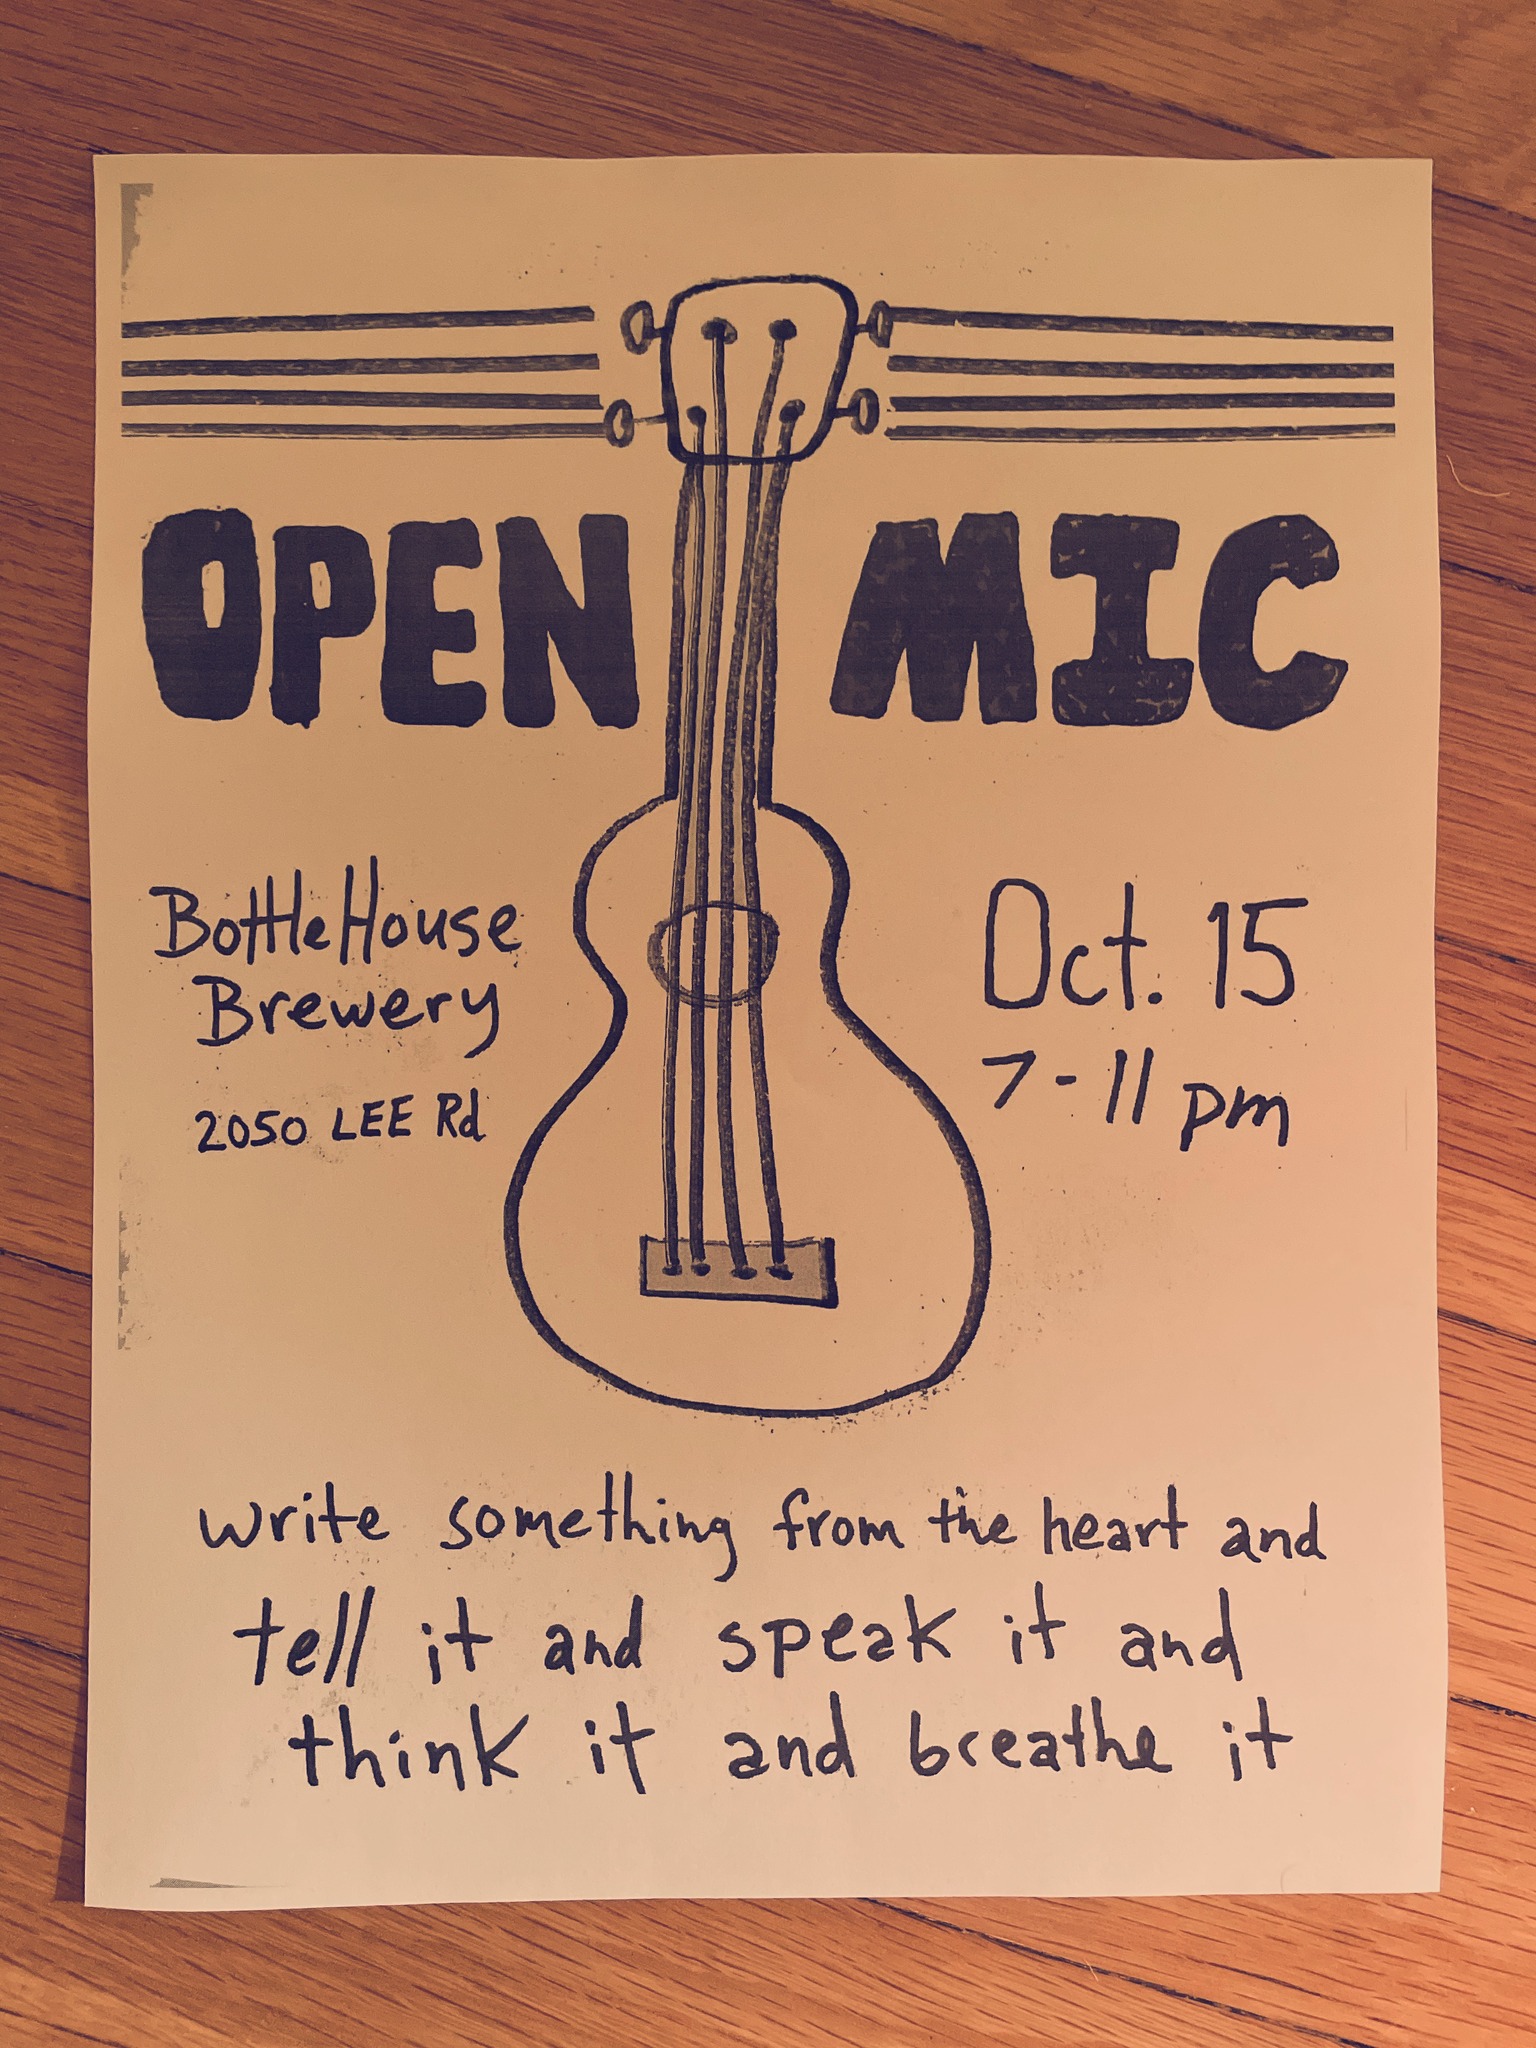 OPEN MIC
BottleHouse
Brewery
2050 LEE Rd
Oct. 15
7-11 pm
write something from the heart and
tell it and speak it and
think it and breathe it